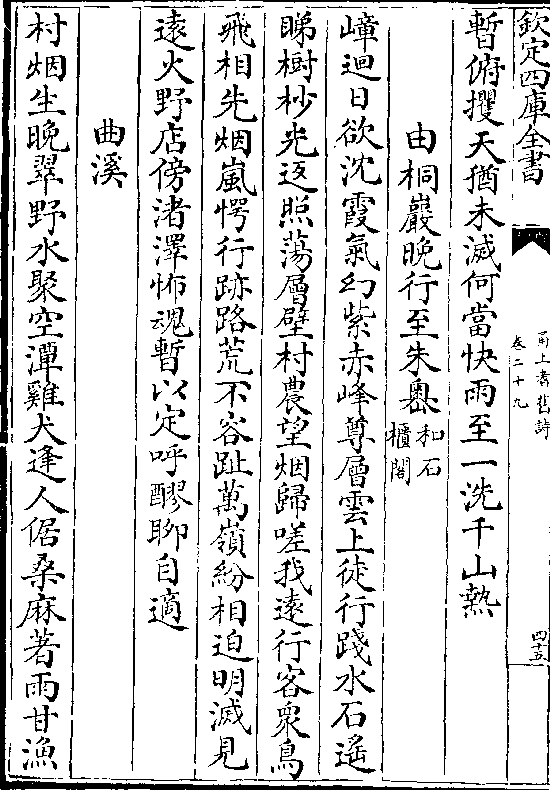 欽定四庫全書
甬上耆舊詩
卷二十九
四十五
暫俯攫天猶未滅何當快雨至一洗千山熱
由桐巖晚行至朱㠗和石
櫃閣
嶂迴日欲沈霞氣幻紫赤峰尊層雲上徒行踐水石遙
睇樹杪光返照蕩層壁村農望烟歸嗟我遠行客衆鳥
飛相先烟嵐愕行跡路荒不容趾萬嶺紛相迫明滅見
遠火野店傍渚澤怖魂暫以定呼醪聊自適
曲溪
村烟生晚翠野水聚空潭雞犬逢人倨桑麻著雨甘漁